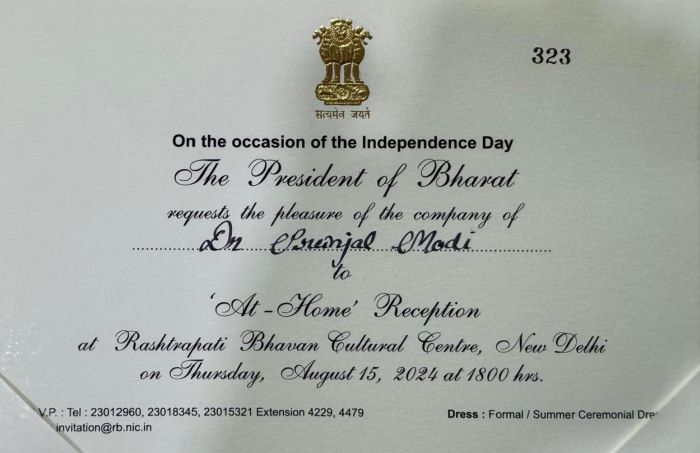 323
सत्यमेव जयते
On the occasion of the Independence Day
The President of Bharat
requests the pleasure of the company of
Dr Prunjal Modi
to
'At-Home' Reception
at Rashtrapati Bhavan Cultural Centre, New Delhi
on Thursday, August 15, 2024 at 1800 hrs.
V.P. : Tel : 23012960, 23018345, 23015321 Extension 4229, 4479
invitation@rb.nic.in
Dress : Formal / Summer Ceremonial Dre